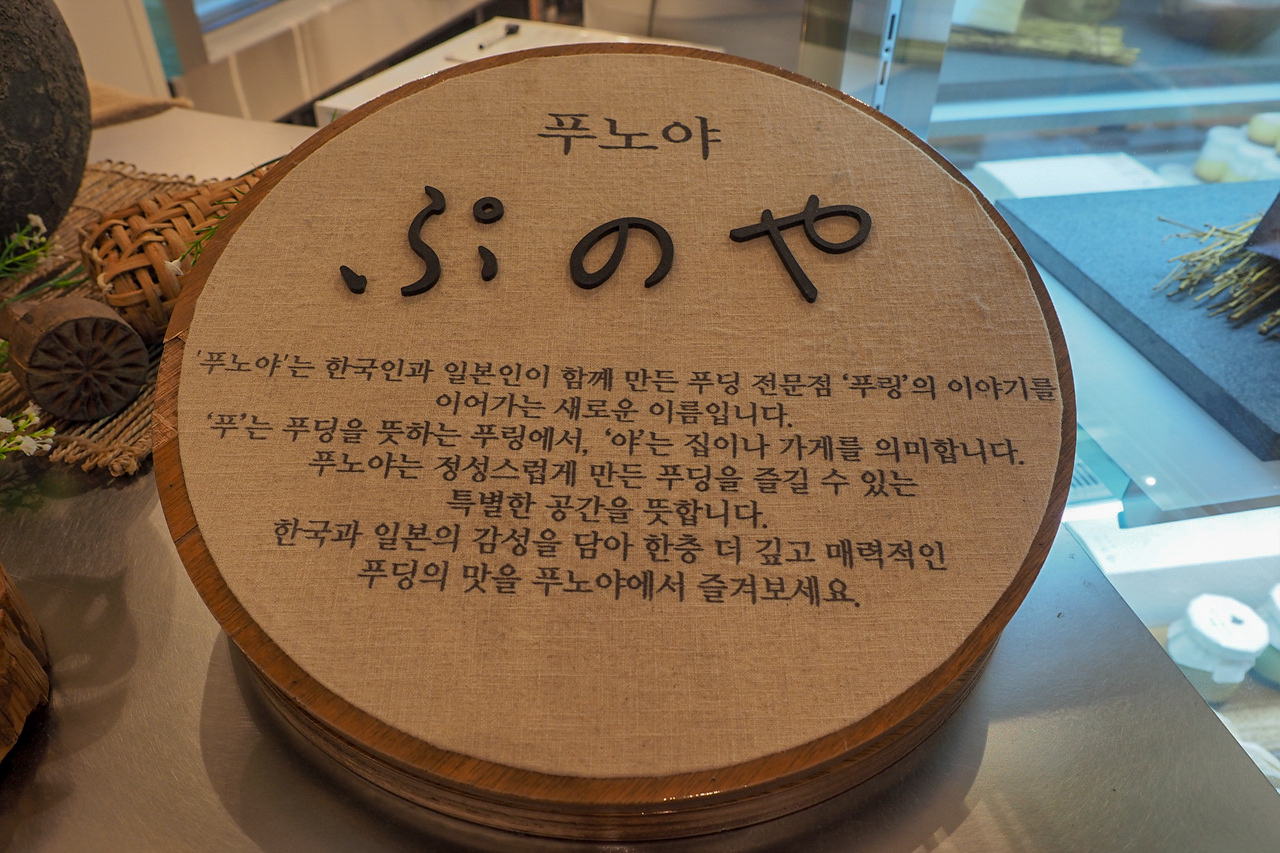 푸노야
ぷのや
'푸노야'는 한국인과 일본인이 함께 만든 푸딩 전문점 ‘푸링’의 이야기를
이어가는 새로운 이름입니다.
‘푸’는 푸딩을 뜻하는 푸링에서, ‘야’는 집이나 가게를 의미합니다.
푸노야는 정성스럽게 만든 푸딩을 즐길 수 있는
특별한 공간을 뜻합니다.
한국과 일본의 감성을 담아 한층 더 깊고 매력적인
푸딩의 맛을 푸노야에서 즐겨보세요.